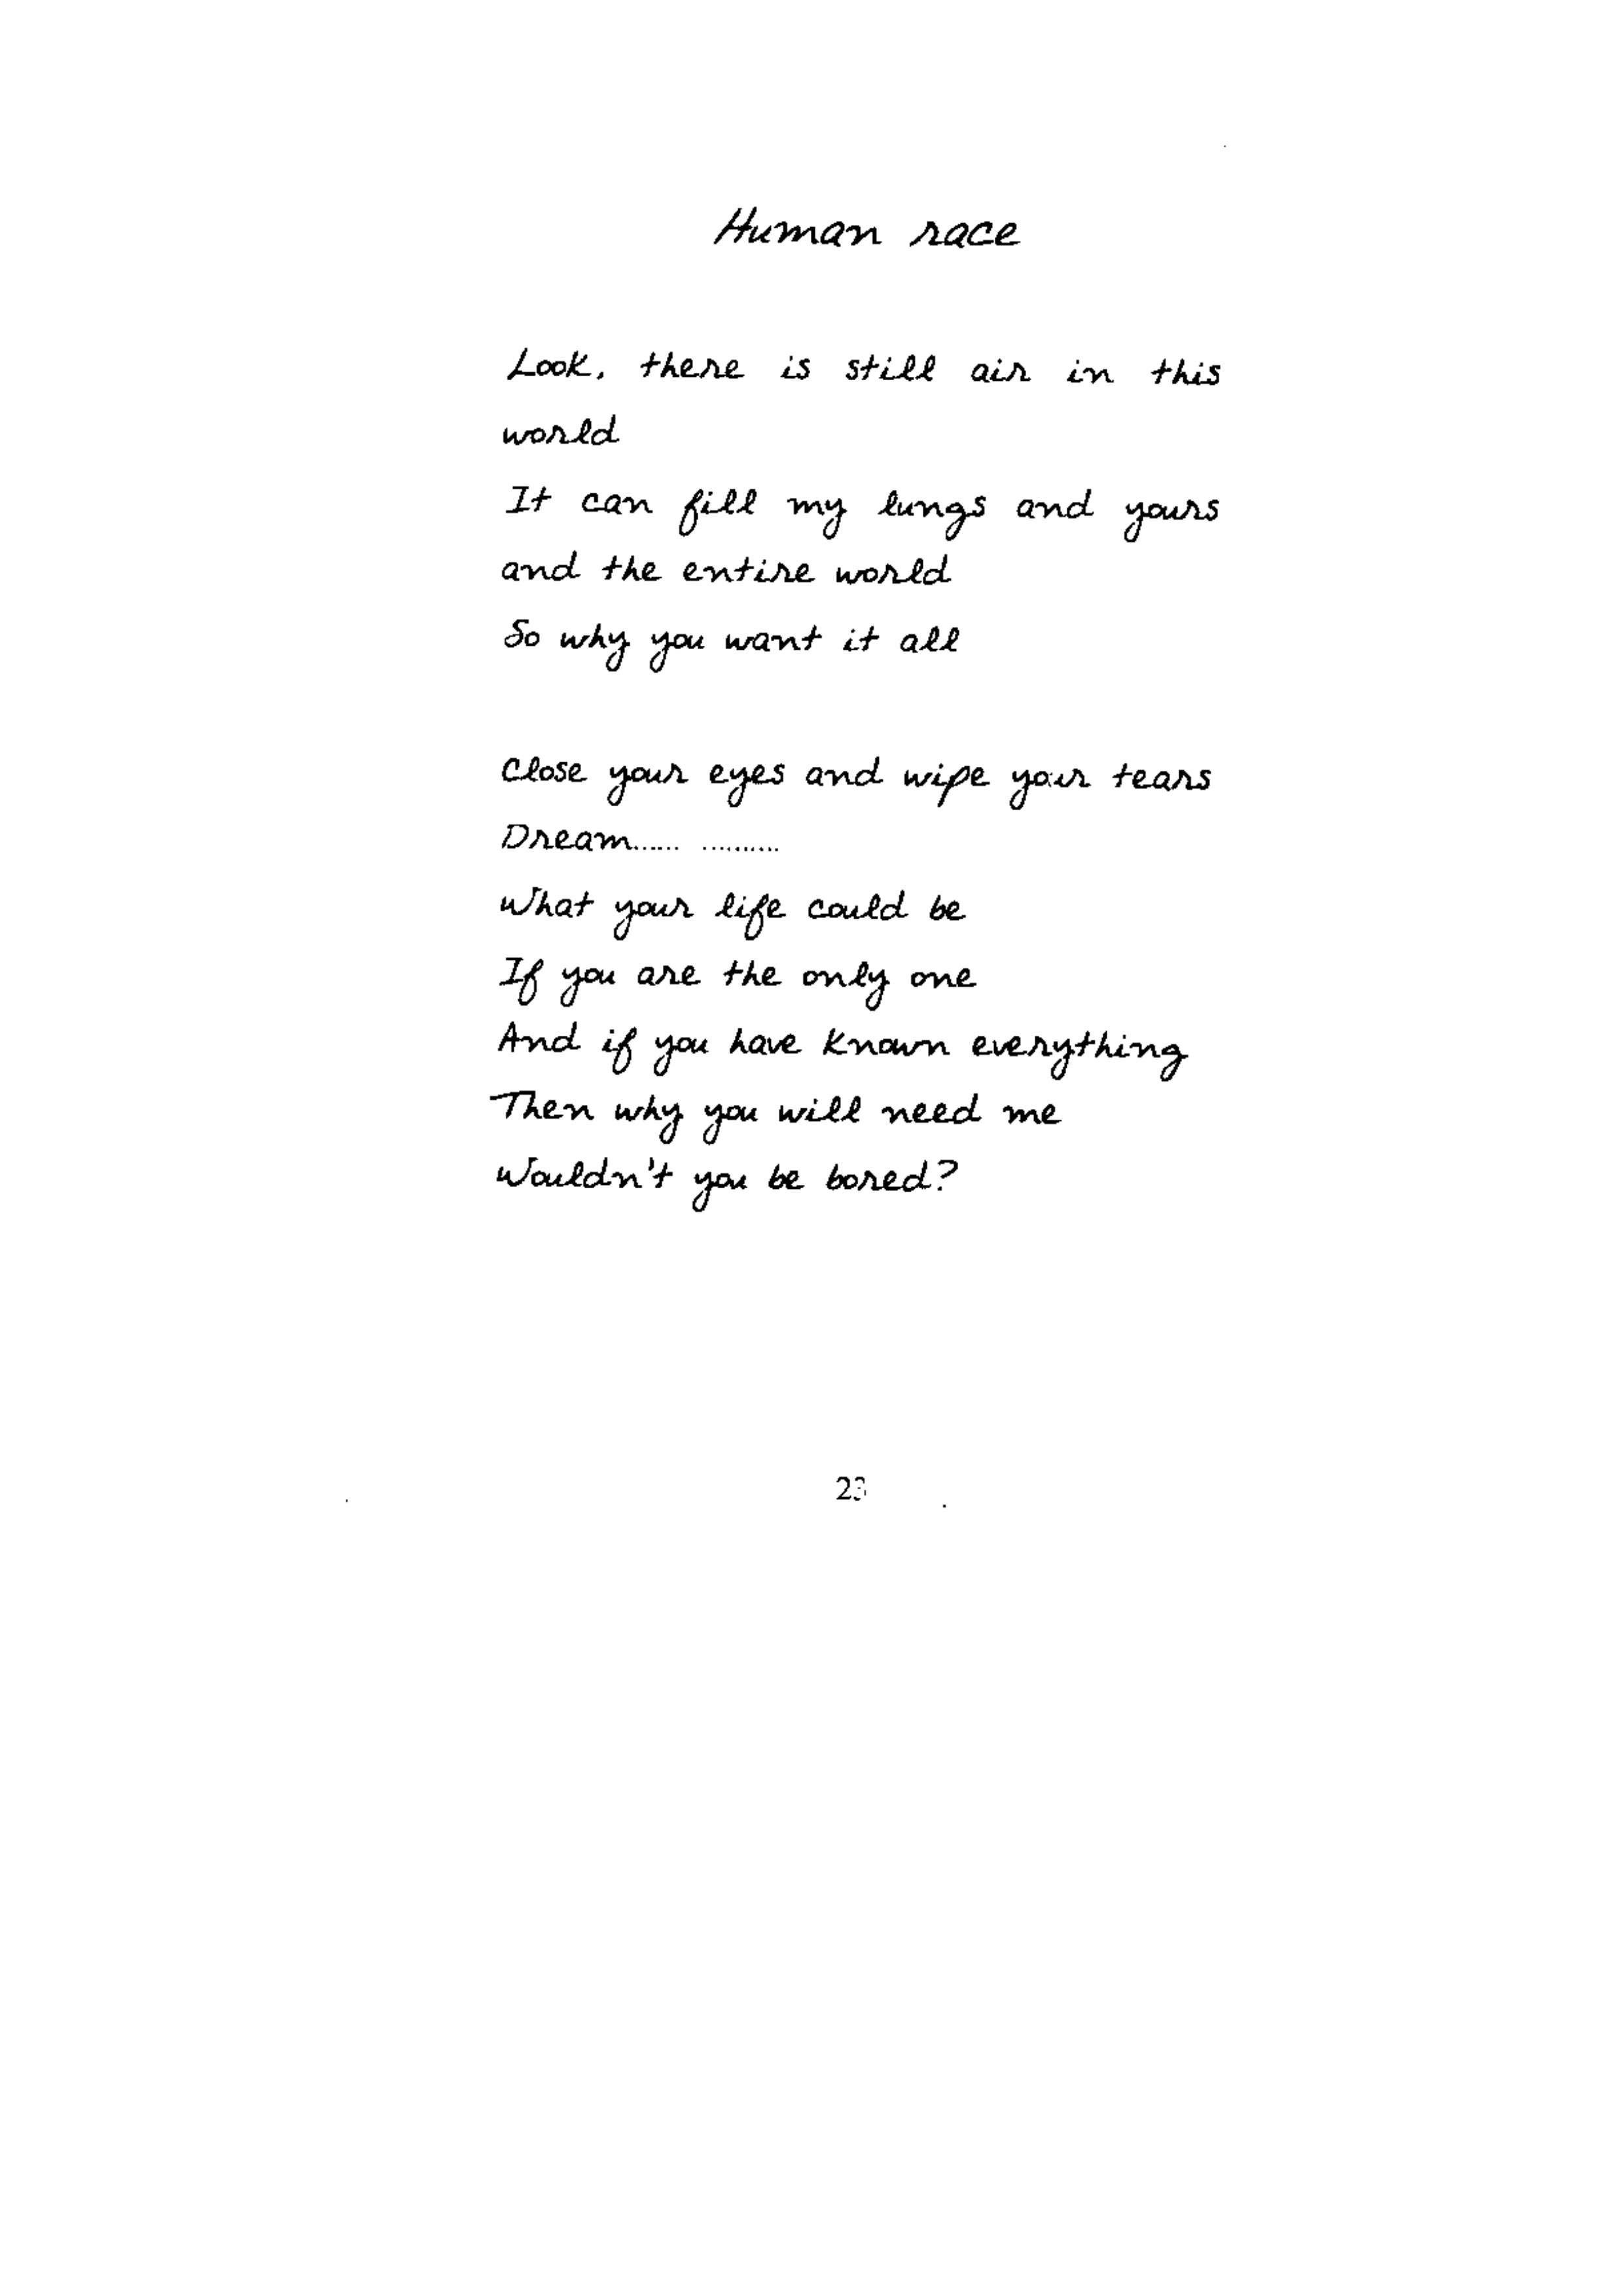 Human race
Look, there is still air in this
world
It can fill my lungs and yours
and the entire world
So why you want it all
Close your eyes and wipe your tears
Dream...... ..........
What your life could be
If you are the only one
And if you have known everything
Then why you will need me
Wouldn't you be bored?
23